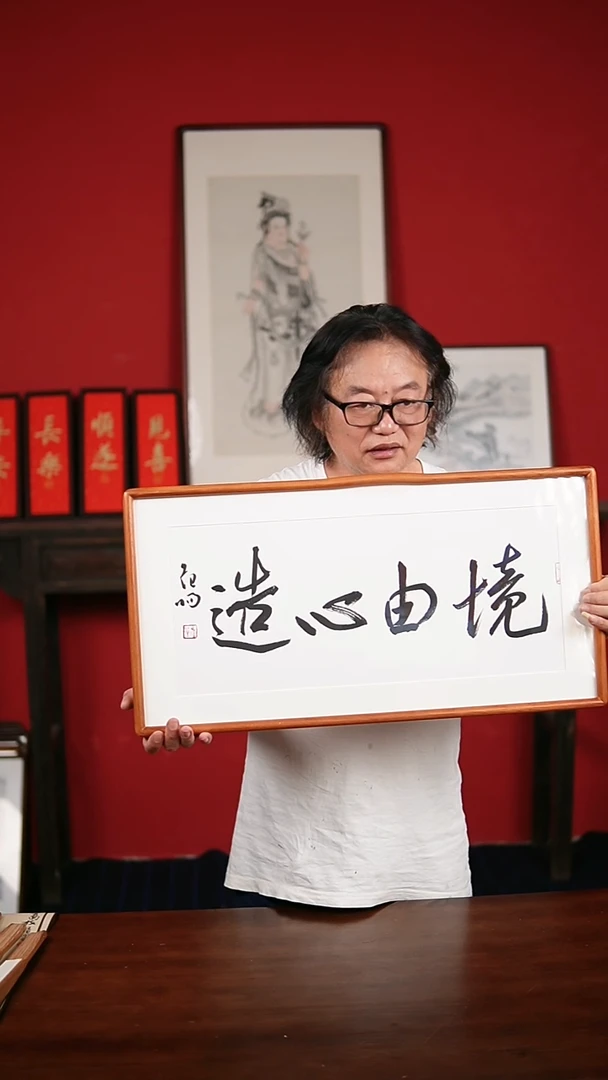 境由心造
長樂
順遂
見喜